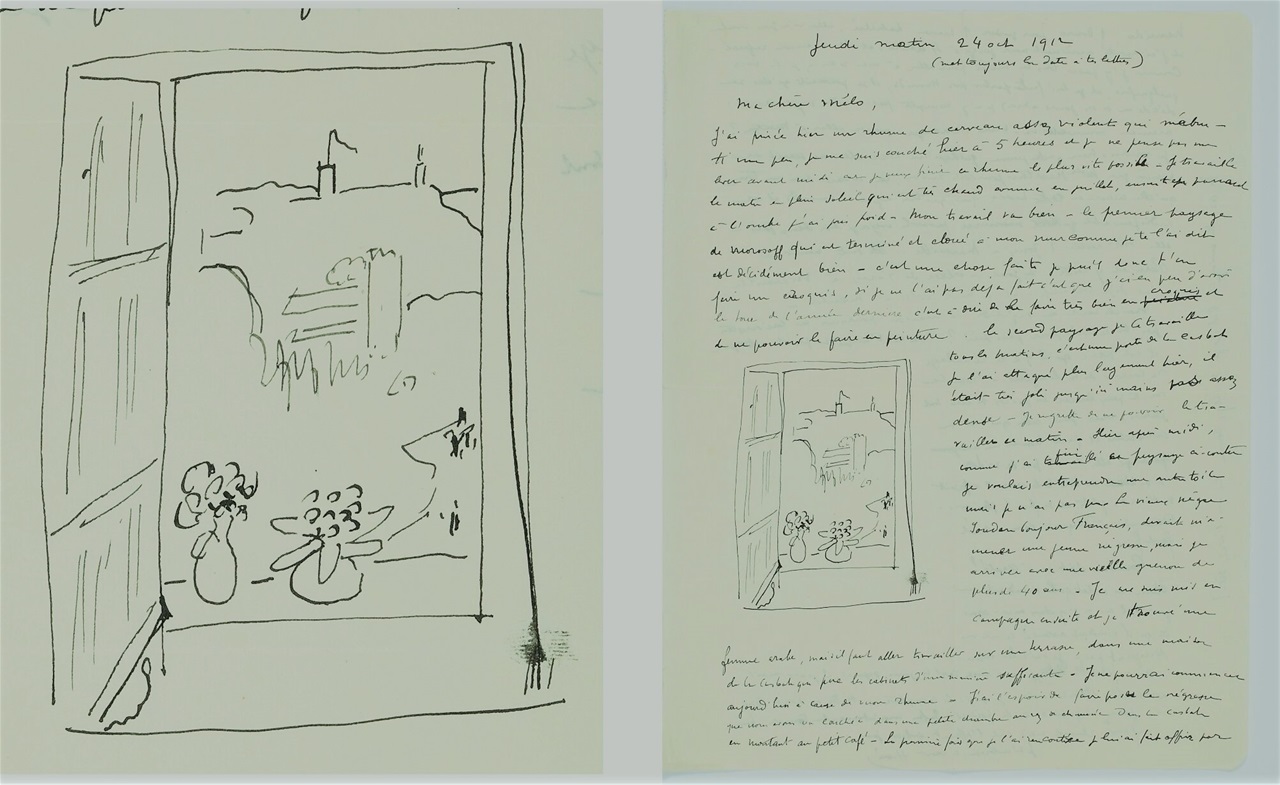 Jeudi matin 24 oct 1912
(met toujours la date à tes lettres)
Ma chère Mélo,
J'ai pincé hier un rhume de cerveau assez violent qui m'abru-
tit un peu, je me suis couché hier à 5 heures et je ne pense pas me
lever avant midi car je veux ce rhume le plus vite possible – Je travaille
le matin en plein soleil qui est très chaud comme en juillet, ensuite
à l'ombre j'ai pris froid – Mon travail va bien – le premier paysage
de Morosoff qui est terminé et cloué à mon mur comme je te l'ai dit
est décidément bien – c'est une chose faite je puis donc t'en
faire un croquis, si je ne l'ai pas déjà fait c'est que j'ai eu peur d'avoir
le de l'année dernière c'est à dire de le faire très bien en croquis et
de ne pouvoir le faire en peinture. le second paysage je le travaille
tous les matins, c'est une porte de la Casbah
Je l'ai attaqué plus largement hier, il
était très joli jusqu'ici mais pas assez
dense – Je regrette de ne pouvoir le tra-
vailler ce matin – Hier après midi,
comme j'ai fini le paysage
je voulais entreprendre une autre toile
mais je n'ai pas pu le vieux nègre
toujours Français, devait m'a-
mener une jeune négresse, mais
arrive avec une vieille guenon de
plus de 40 ans – Je me suis mis en
campagne ensuite et j'ai trouvé une
femme arabe, mais il faut aller travailler sur une terrasse, dans une maison
de la Casbah qui pue les cabinets d'une manière suffocante – Je ne pourrai commencer
aujourd'hui à cause de mon rhume – J'ai l'espoir de faire poser la négresse
que nous avons vu dans une petite chambre au rez de chaussée dans la casbah
en montant au petit café – La première fois que je l'ai rencontrée je lui ai fait offrir par